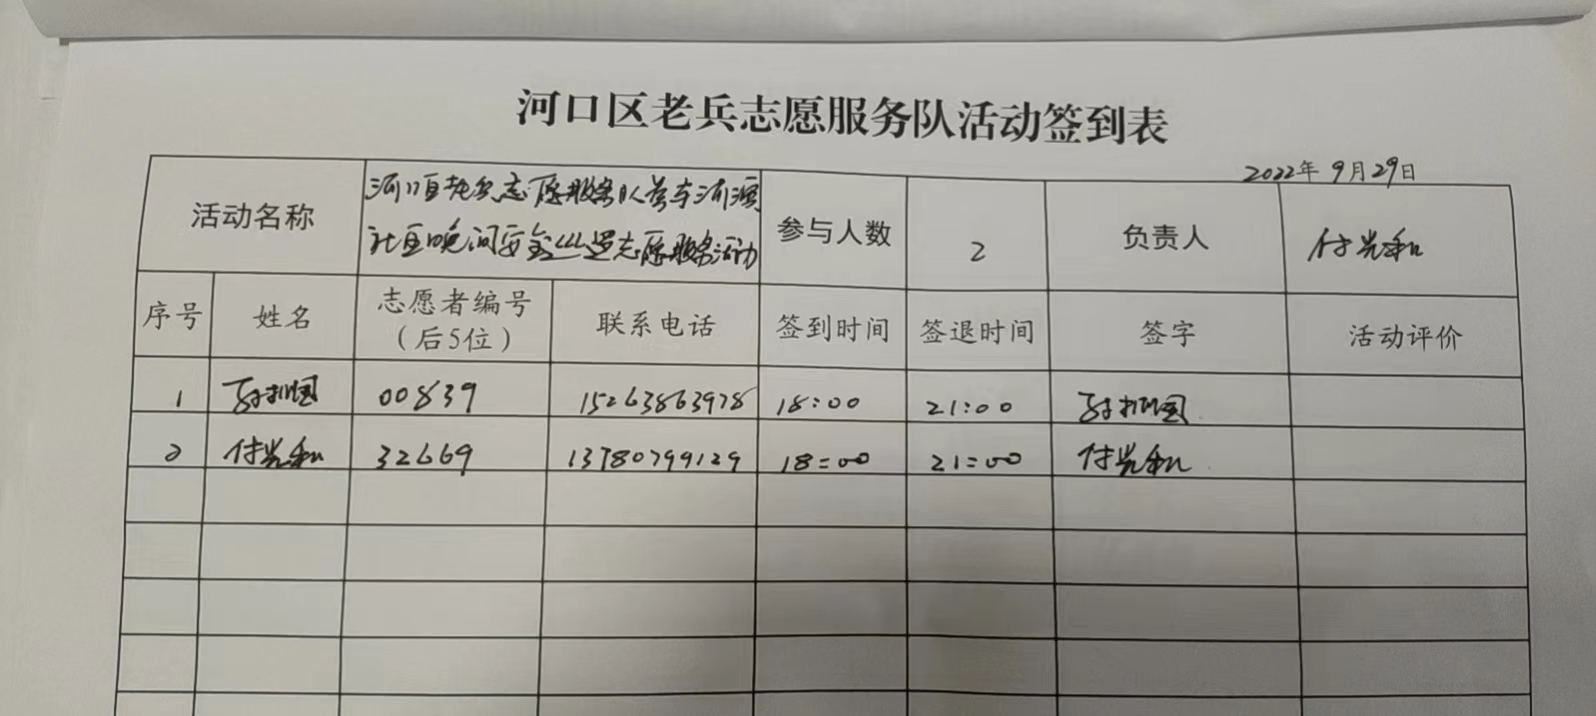 河口区老兵志愿服务队活动签到表
2022年9月29日
活动名称 河口区老兵志愿服务队参与河滨社区晚间安全巡逻志愿服务活动 参与人数 2 负责人 付光和
序号 姓名 志愿者编号（后5位） 联系电话 签到时间 签退时间 签字 活动评价
1 00839 15263863978 18:00 21:00
2 付光和 32669 13780799129 18:00 21:00 付光和